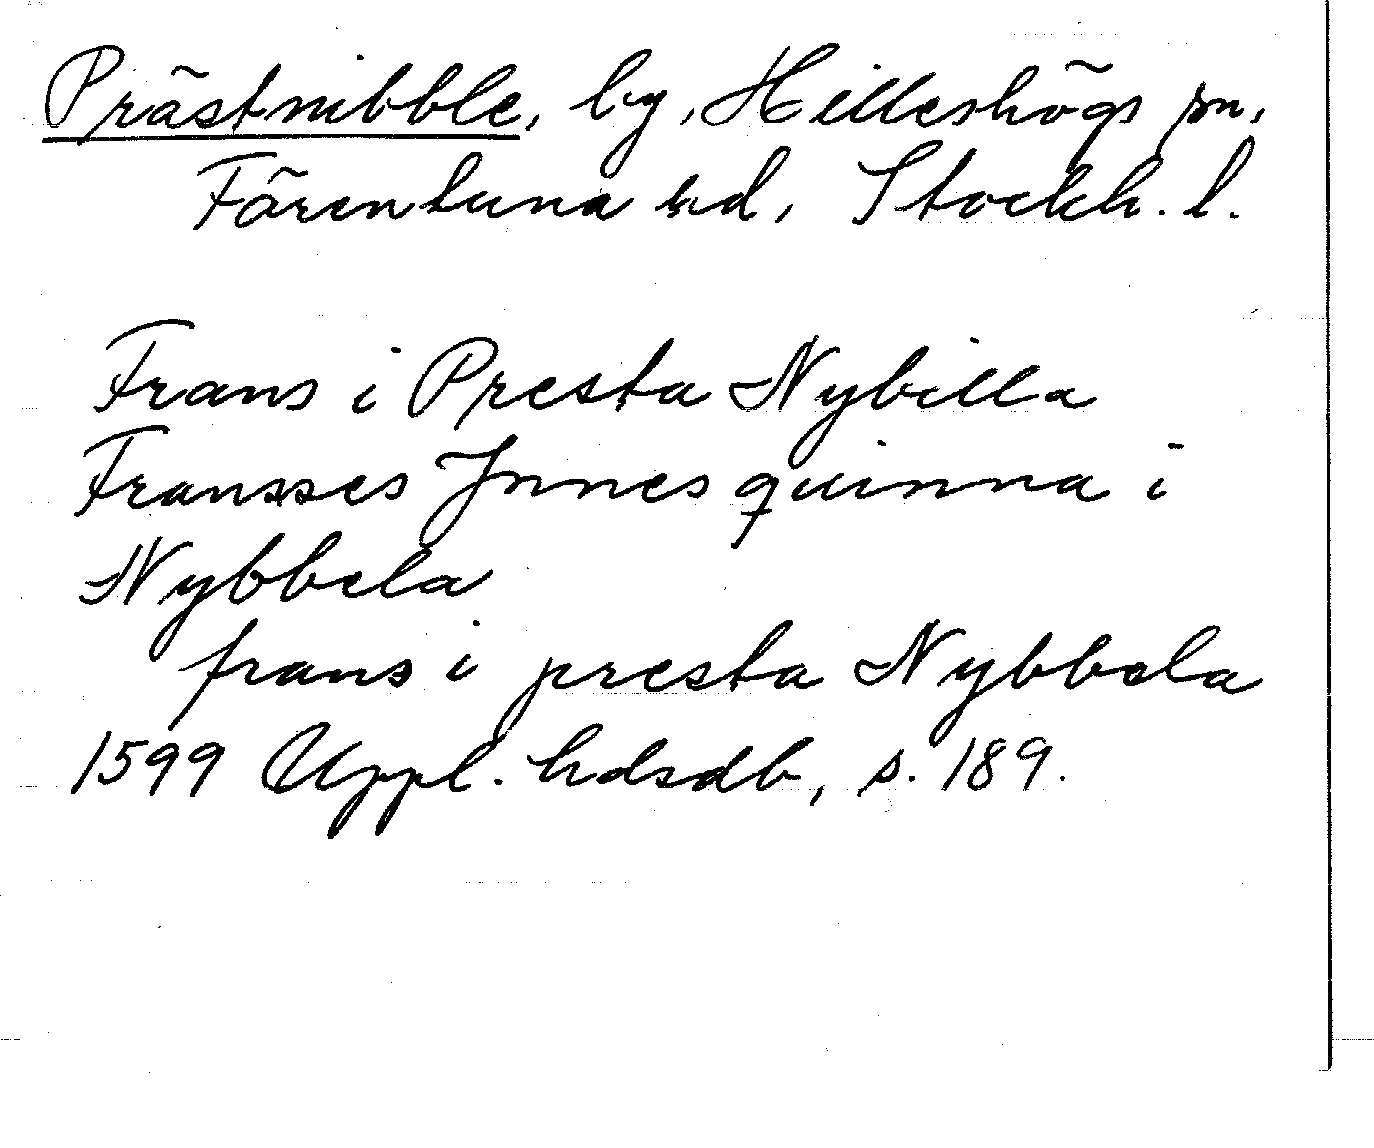 Prästnibble, by, Hilleshögs sn,
Färentuna hd, Stockh. l.
Frans i Presta Nybilla
Fransses Jnnes quinna i
Nybbela
frans i presta Nybbela
1599 Uppl. hdsdb, s. 189.